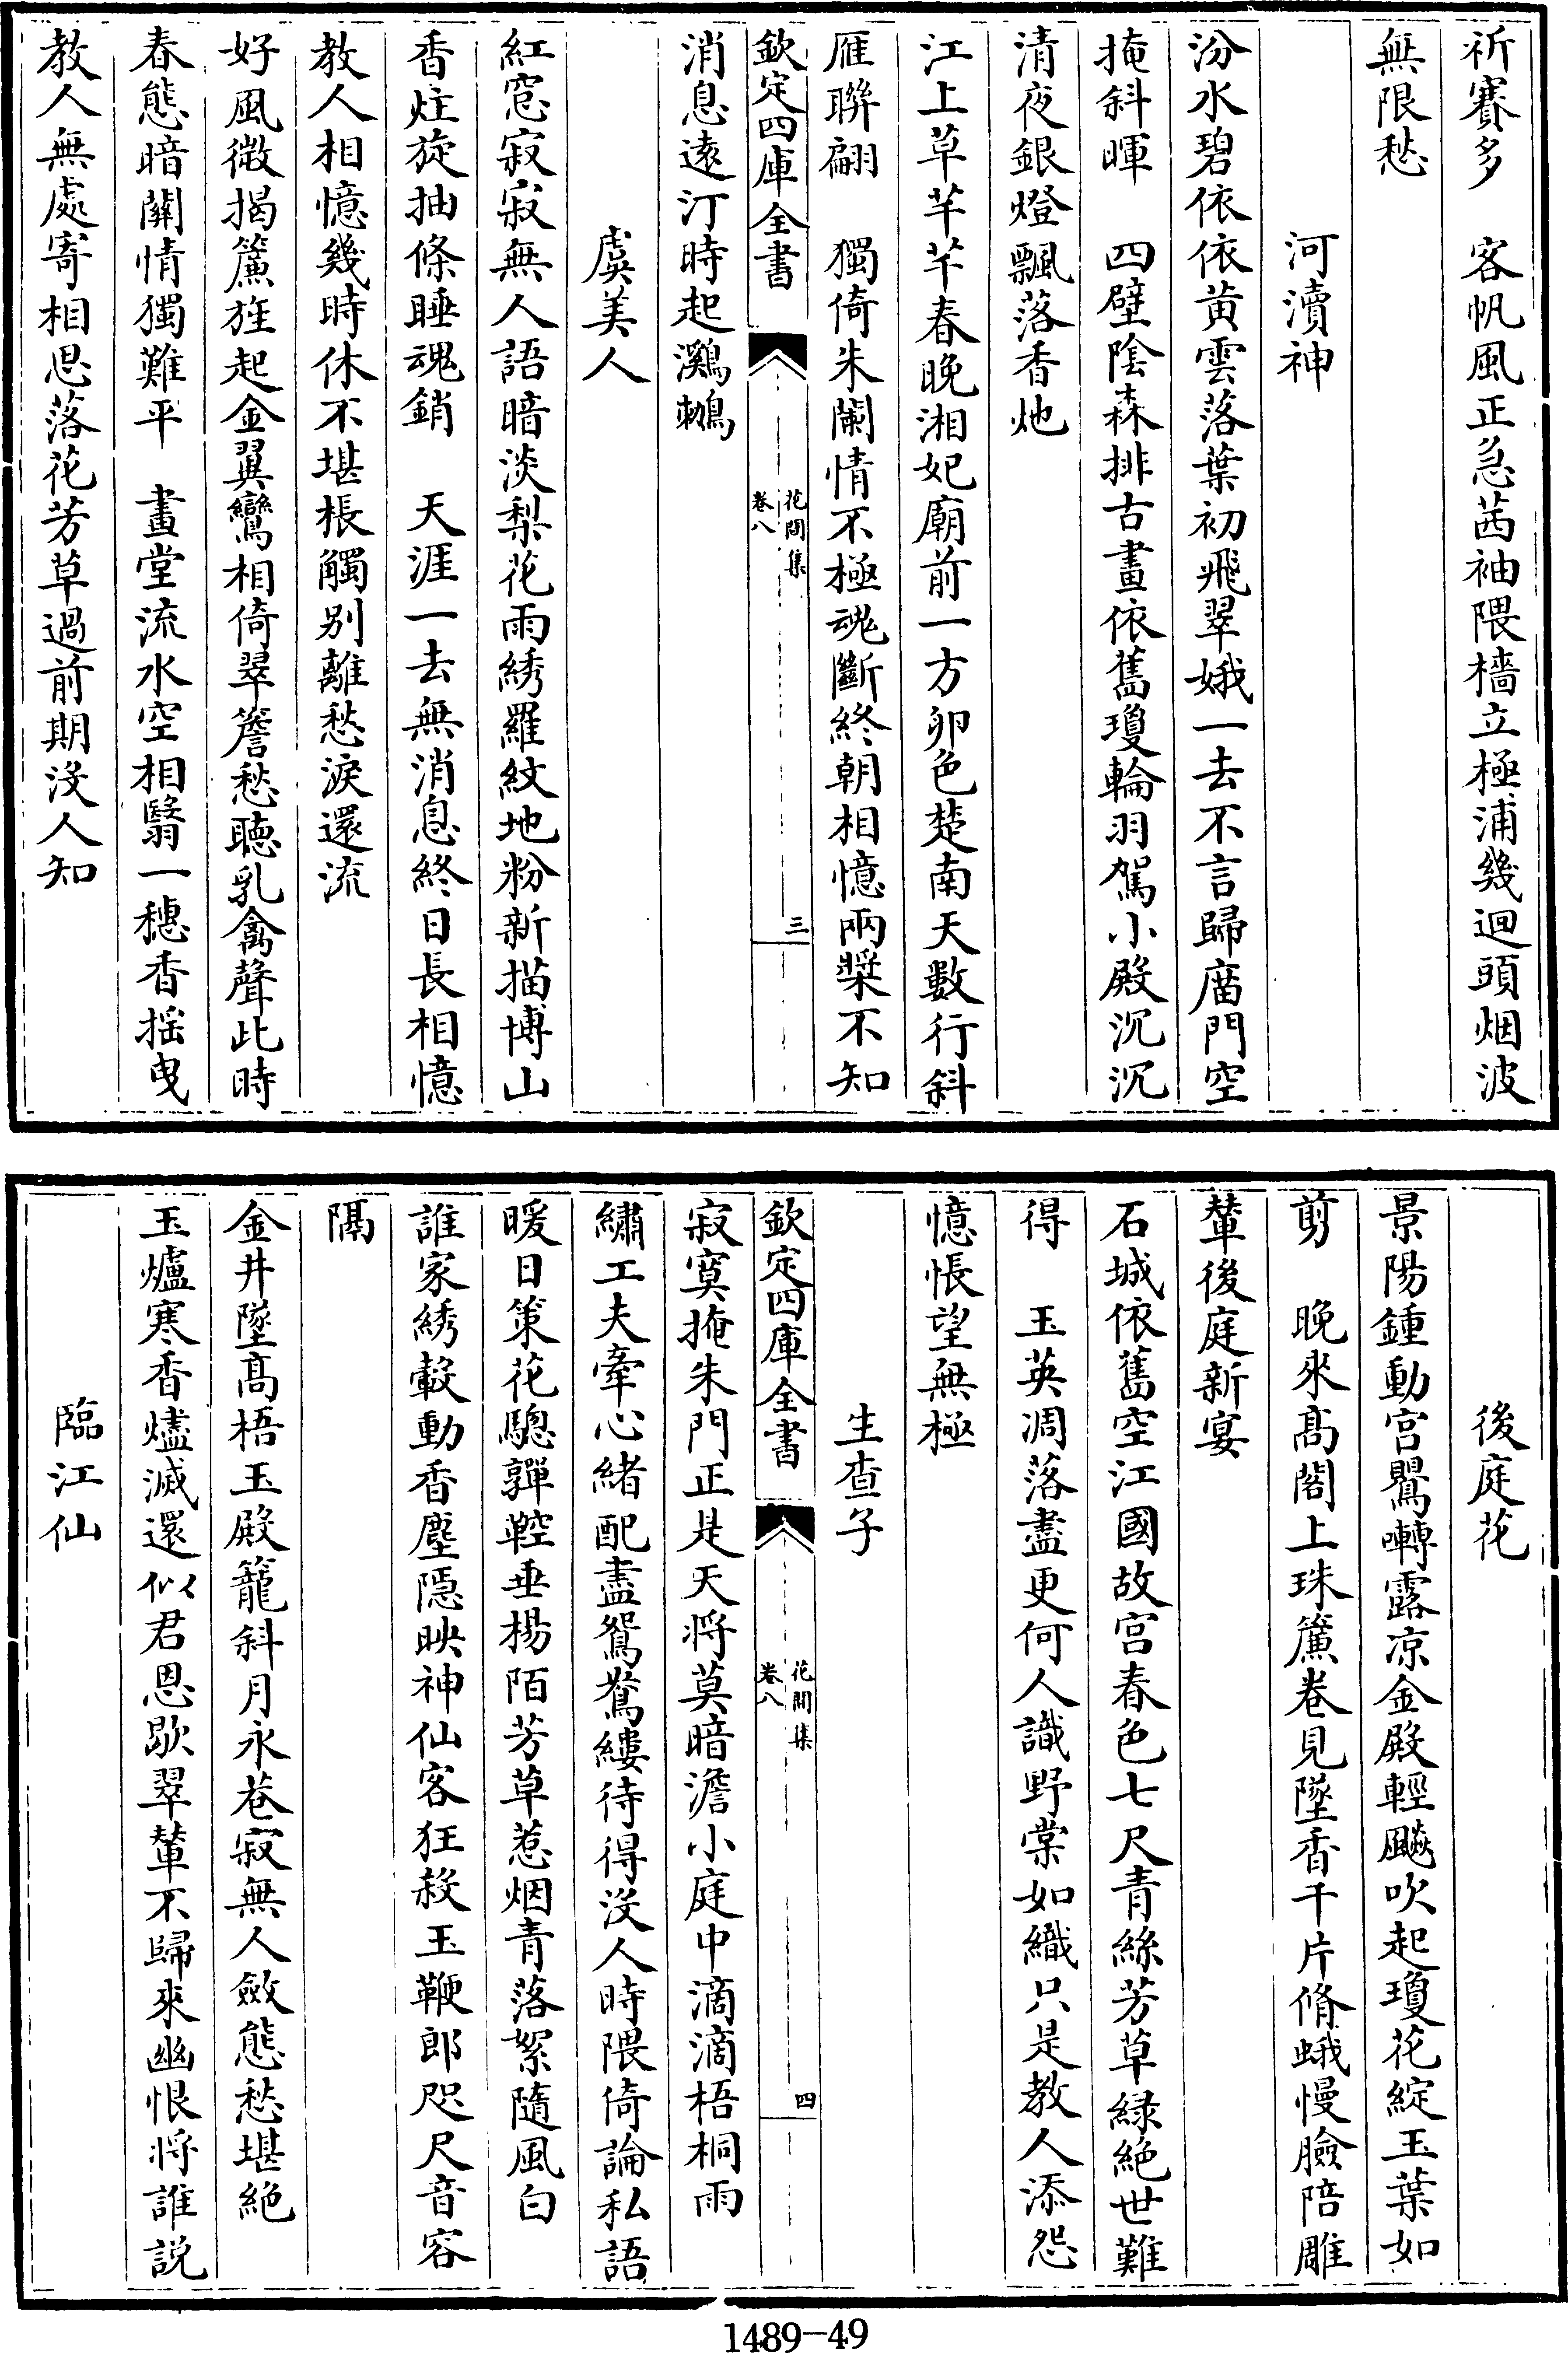 祈賽多　客帆風正急茜袖隈檣立極浦幾迴頭烟波
無限愁
河瀆神
汾水碧依依黄雲落葉初飛翠娥一去不言歸廟門空
掩斜暉　四壁陰森排古畫依舊瓊輪羽駕小殿沉沉
清夜銀燈飄落香灺
江上草芊芊春晚湘妃廟前一方卵色楚南天數行斜
雁聯翩　獨倚朱闌情不極魂斷終朝相憶兩槳不知
欽定四庫全書
花間集
卷八
三
消息遠汀時起鸂鶒
虞美人
紅窓寂寂無人語暗淡梨花雨綉羅紋地粉新描博山
香炷旋抽條睡魂銷　天涯一去無消息終日長相憶
教人相憶幾時休不堪棖觸别離愁淚還流
好風微揭簾旌起金翼鸞相倚翠簷愁聽乳禽聲此時
春態暗關情獨難平　畫堂流水空相翳一穗香摇曳
教人無處寄相思落花芳草過前期没人知
後庭花
景陽鍾動宫鸎囀露凉金殿輕飈吹起瓊花綻玉葉如
剪　晚來髙閣上珠簾卷見墜香千片脩蛾慢臉陪雕
輦後庭新宴
石城依舊空江國故宫春色七尺青絲芳草緑絶世難
得　玉英凋落盡更何人識野棠如織只是教人添怨
憶悵望無極
生查子
欽定四庫全書
花間集
卷八
四
寂寞掩朱門正是天將莫暗澹小庭中滴滴梧桐雨
繡工夫牽心緒配盡鴛鴦縷待得没人時隈倚論私語
暖日策花驄嚲鞚垂楊陌芳草惹烟青落絮隨風白
誰家綉轂動香塵隱映神仙客狂殺玉鞭郎咫尺音容
隔
金井墜髙梧玉殿籠斜月永巷寂無人斂態愁堪絶
玉爐寒香燼滅還似君恩歇翠輦不歸來幽恨將誰説
臨江仙
1489—49